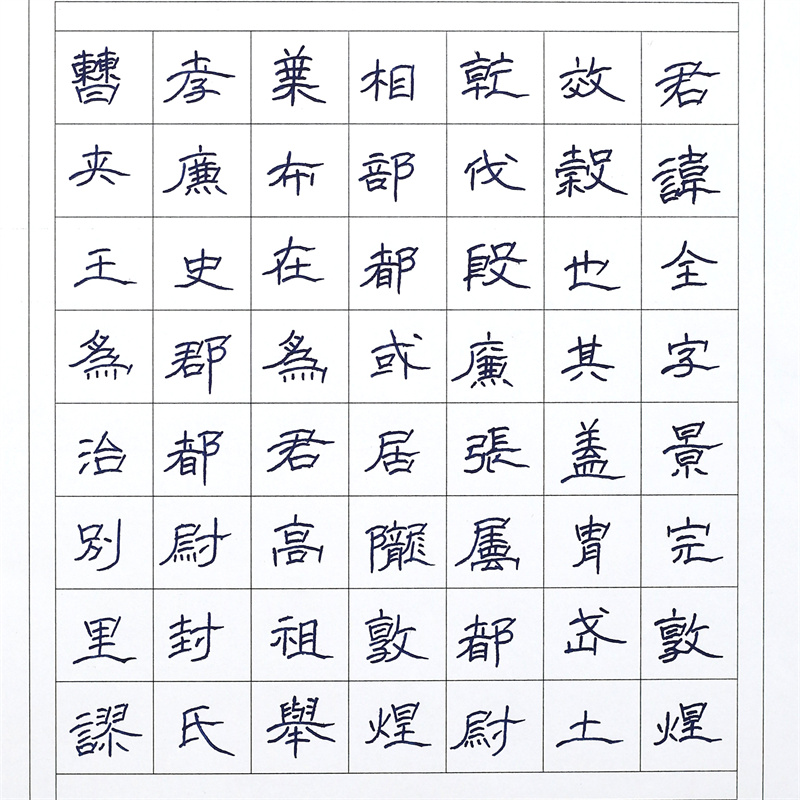 君諱全字景完敦煌
效穀也其蓋胄武土
乾伐段廉張屬都尉
相部都或居隴敦煌
葉布在為君高祖舉
孝廉史郡都尉封氏
曹夾王為治別里謬